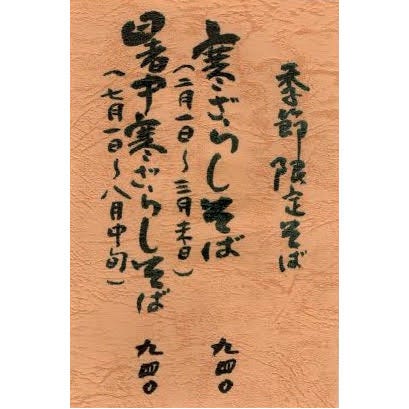 季節限定そば
寒ざらしそば 九四〇
(二月一日～三月末日)
暑中寒ざらしそば 九四〇
(七月一日～八月中旬)